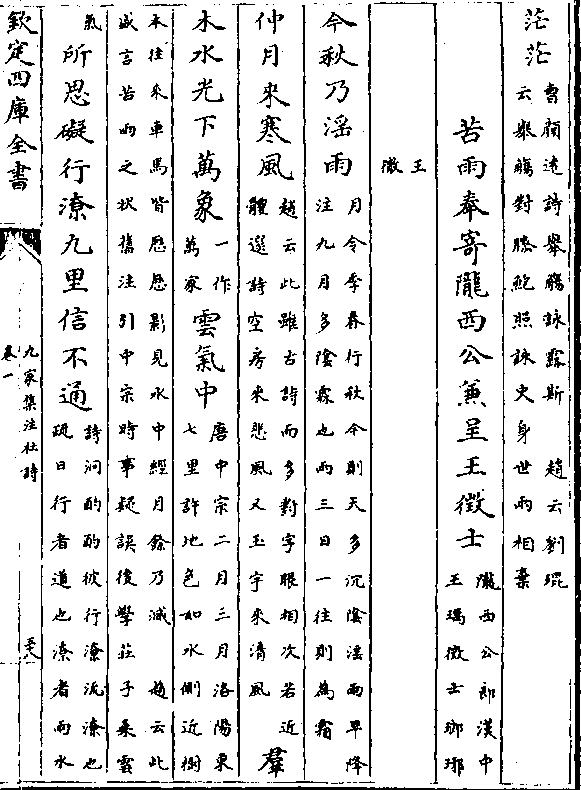 茫茫
曹顔逺詩舉觴詠露斯 趙云劉琨
云舉觴對膝鮑照詠史身世兩相棄
苦雨奉寄隴西公兼呈王徴士
隴西公郎漢中
王瑀徴士瑯琊
王
徹
今秋乃淫雨
月令季春行秋令則天多沉隂淫雨早降
注九月多隂霖也雨三日一往則為霜
仲月來寒風
趙云此雖古詩而多對字眼相次若近
體選詩空房來悲風又玉宇來清風
羣
木水光下萬象
一作
萬家
雲氣中
唐中宗二月三月洛陽東
七里許地色如水側近樹
木往來車馬皆歴歴影見水中經月餘乃滅 趙云此
咸言苦雨之狀舊注引中宗時事疑誤後學莊子乘雲
氣
所思礙行潦九里信不通
詩泂酌酌彼行潦流潦也
疏曰行者道也潦者雨水
欽定四庫全書
九家集注杜詩
卷一